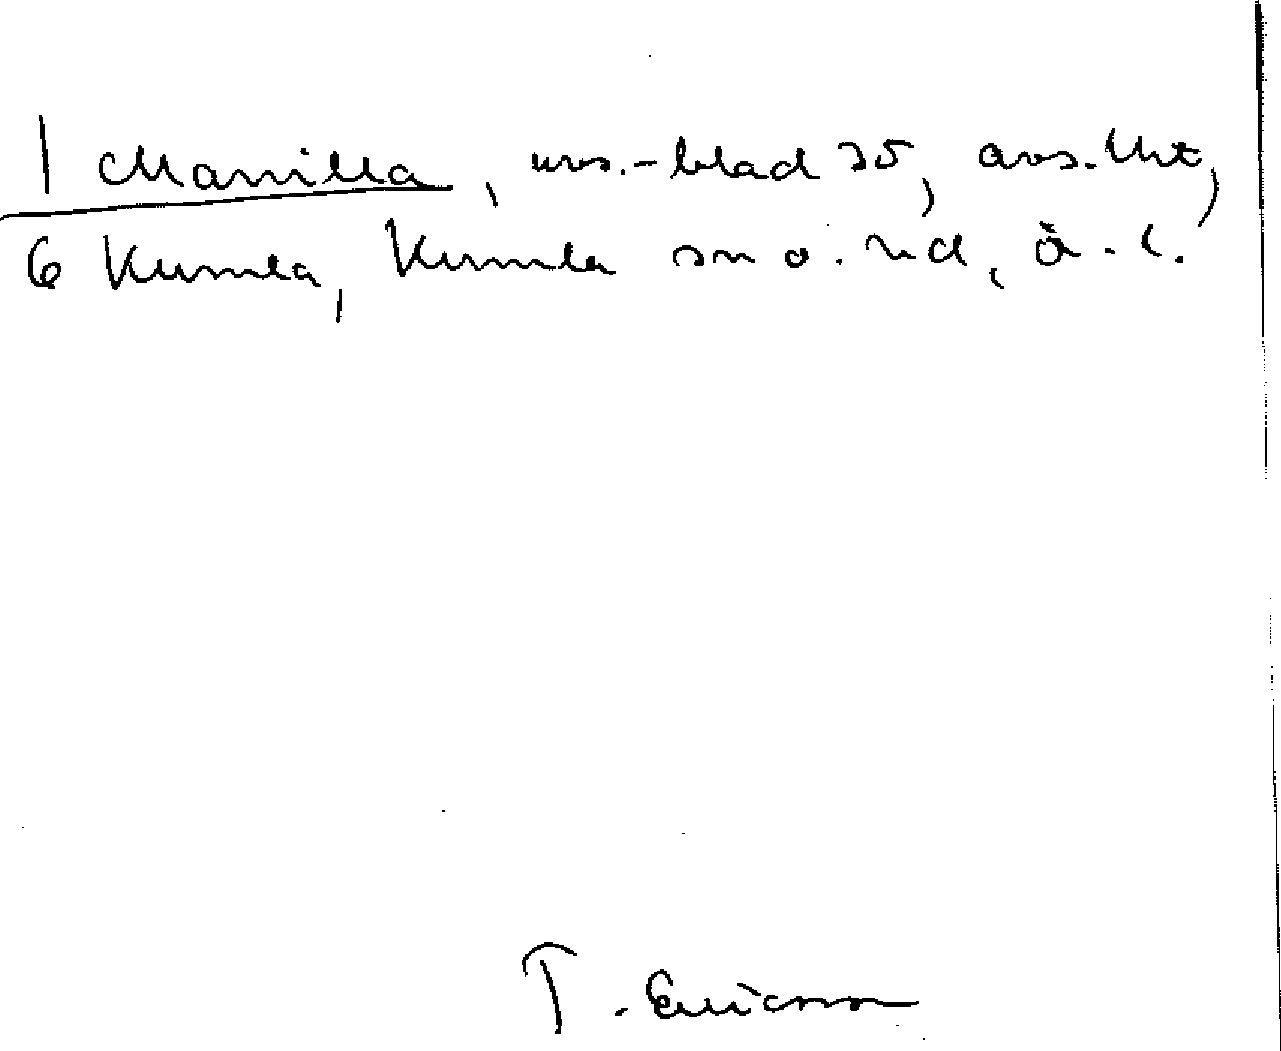 1 Manilla, urs.-blad 35, avs. Uht,
6 Kumla, Kumla sn o. hd, Ö. l.
T. Ericson